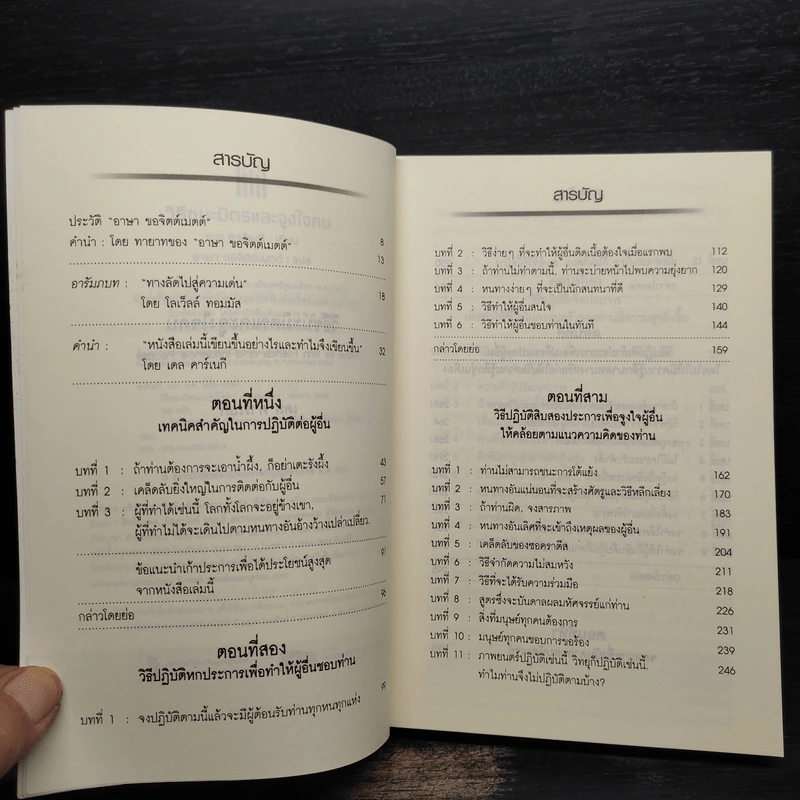 สารบัญ
ประวัติ "อาษา ขอจิตต์เมตต์" 8
คำนำ : โดย ทายาทของ "อาษา ขอจิตต์เมตต์" 13
อารัมภบท : "ทางลัดไปสู่ความเด่น" 18
โดย โลเวิลล์ ทอมมัส
คำนำ : "หนังสือเล่มนี้เขียนขึ้นอย่างไรและทำไมจึงเขียนขึ้น" 32
โดย เดล คาร์เนกี
ตอนที่หนึ่ง
เทคนิคสำคัญในการปฏิบัติต่อผู้อื่น
บทที่ 1 : ถ้าท่านต้องการจะเอาน้ำผึ้ง, ก็อย่าเตะรังผึ้ง 43
บทที่ 2 : เคล็ดลับยิ่งใหญ่ในการติดต่อกับผู้อื่น 57
บทที่ 3 : ผู้ที่ทำได้เช่นนี้ โลกทั้งโลกจะอยู่ข้างเขา, 71
ผู้ที่ทำไม่ได้จะเดินไปตามหนทางอันอ้างว้างเปล่าเปลี่ยว.
ข้อแนะนำเก้าประการเพื่อได้ประโยชน์สูงสุด 91
จากหนังสือเล่มนี้
กล่าวโดยย่อ 96
ตอนที่สอง
วิธีปฏิบัติหกประการเพื่อทำให้ผู้อื่นชอบท่าน
บทที่ 1 : จงปฏิบัติตามนี้แล้วจะมีผู้ต้อนรับท่านทุกหนทุกแห่ง 99
สารบัญ
บทที่ 2 : วิธีง่ายๆ ที่จะทำให้ผู้อื่นติดเนื้อต้องใจเมื่อแรกพบ 112
บทที่ 3 : ถ้าท่านไม่ทำตามนี้, ท่านจะบ่ายหน้าไปพบความยุ่งยาก 120
บทที่ 4 : หนทางง่ายๆ ที่จะเป็นนักสนทนาที่ดี 129
บทที่ 5 : วิธีทำให้ผู้อื่นสนใจ 140
บทที่ 6 : วิธีทำให้ผู้อื่นชอบท่านในทันที 144
กล่าวโดยย่อ 159
ตอนที่สาม
วิธีปฏิบัติสิบสองประการเพื่อจูงใจผู้อื่น
ให้คล้อยตามแนวความคิดของท่าน
บทที่ 1 : ท่านไม่สามารถชนะการโต้แย้ง 162
บทที่ 2 : หนทางอันแน่นอนที่จะสร้างศัตรูและวิธีหลีกเลี่ยง 170
บทที่ 3 : ถ้าท่านผิด, จงสารภาพ 183
บทที่ 4 : หนทางอันเลิศที่จะเข้าถึงเหตุผลของผู้อื่น 191
บทที่ 5 : เคล็ดลับของซอคราตีส 204
บทที่ 6 : วิธีจำกัดความไม่สมหวัง 211
บทที่ 7 : วิธีที่จะได้รับความร่วมมือ 218
บทที่ 8 : สูตรซึ่งจะบันดาลผลมหัศจรรย์แก่ท่าน 226
บทที่ 9 : สิ่งที่มนุษย์ทุกคนต้องการ 231
บทที่ 10 : มนุษย์ทุกคนชอบการขอร้อง 239
บทที่ 11 : ภาพยนตร์ปฏิบัติเช่นนี้ วิทยุก็ปฏิบัติเช่นนี้. 246
ทำไมท่านจึงไม่ปฏิบัติตามบ้าง?